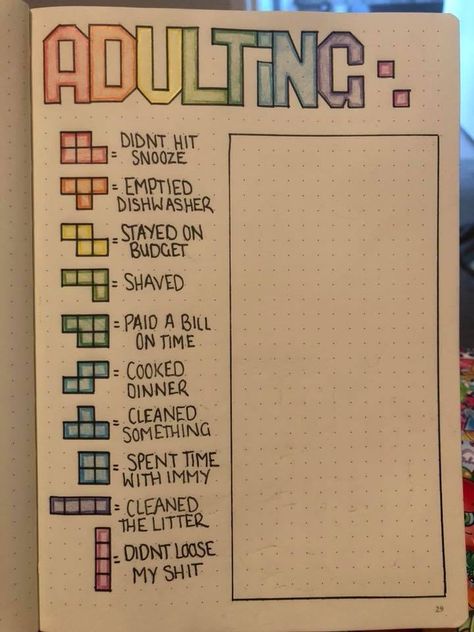 ADULTING:
= DIDNT HIT
SNOOZE
= EMPTIED
DISHWASHER
= STAYED ON
BUDGET
= SHAVED
= PAID A BILL
ON TIME
= COOKED
DINNER
= CLEANED
SOMETHING
= SPENT TIME
WITH IMMY
= CLEANED
THE LITTER
= DIDNT LOOSE
MY SHIT
29